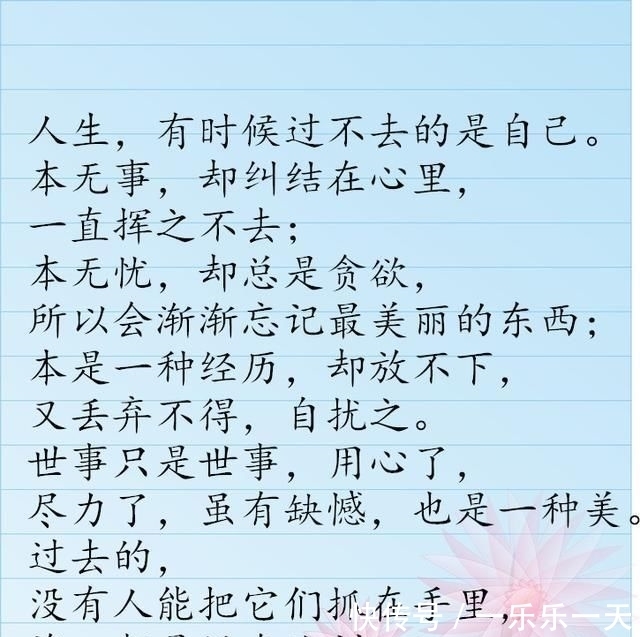 人生，有时候过不去的是自己。
本无事，却纠结在心里，
一直挥之不去；
本无忧，却总是贪欲，
所以会渐渐忘记最美丽的东西；
本是一种经历，却放不下，
又丢弃不得，自扰之。
世事只是世事，用心了，
尽力了，虽有缺憾，也是一种美。
过去的，
没有人能把它们抓在手里，
快传号/一乐乐一天